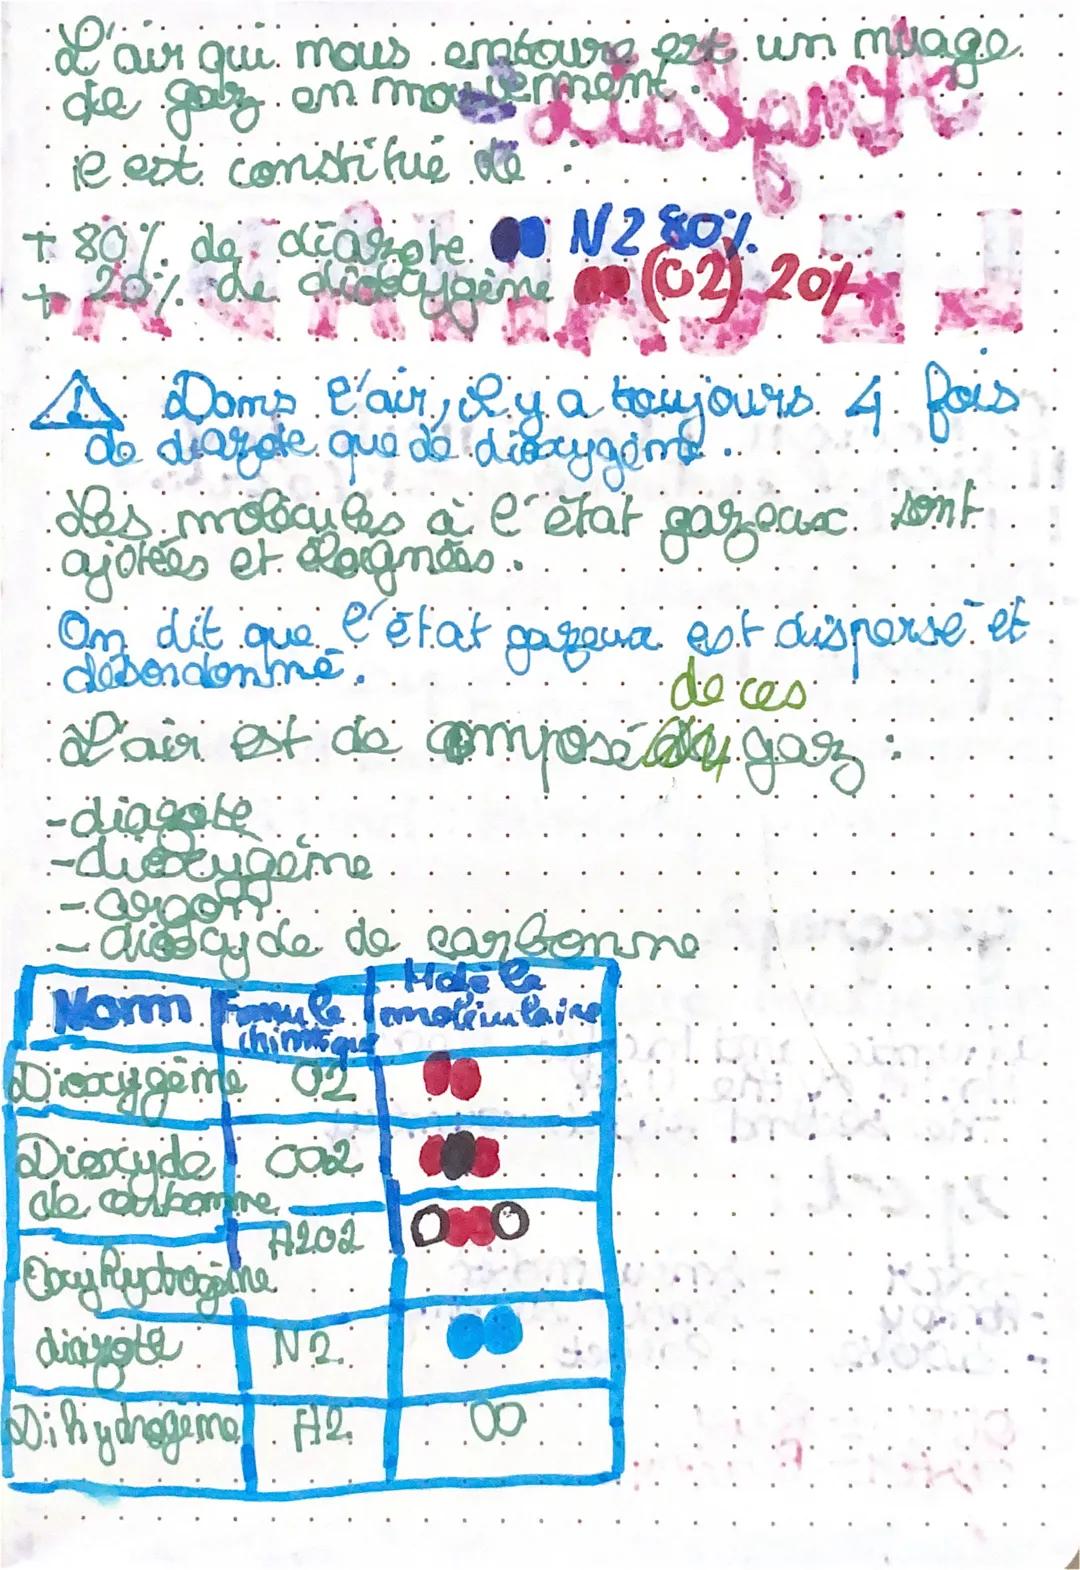 L'air qui nous entoure est un nuage
de gaz en mouvement.
il est constitué de :
+ 80% de diazote N2 80%
+ 20% de dioxygène (O2) 20%
! Dans l'air, il y a toujours 4 fois
de diazote que de dioxygène.
Les molécules à l'état gazeux sont
ajotées et éloignées.
On dit que l'état gazeux est dispersé et
désordonné.
de ces
L'air est de composé gaz :
-diazote
-dioxygène
-argon
- dioxcyde de carbonne
Nom Fomule chimique Modèle moléculaire
Dioxygène O2
Dioxcyde de carbonne CO2
Oxyhydrogène H2O2
diazote N2
Dihydrogène H2